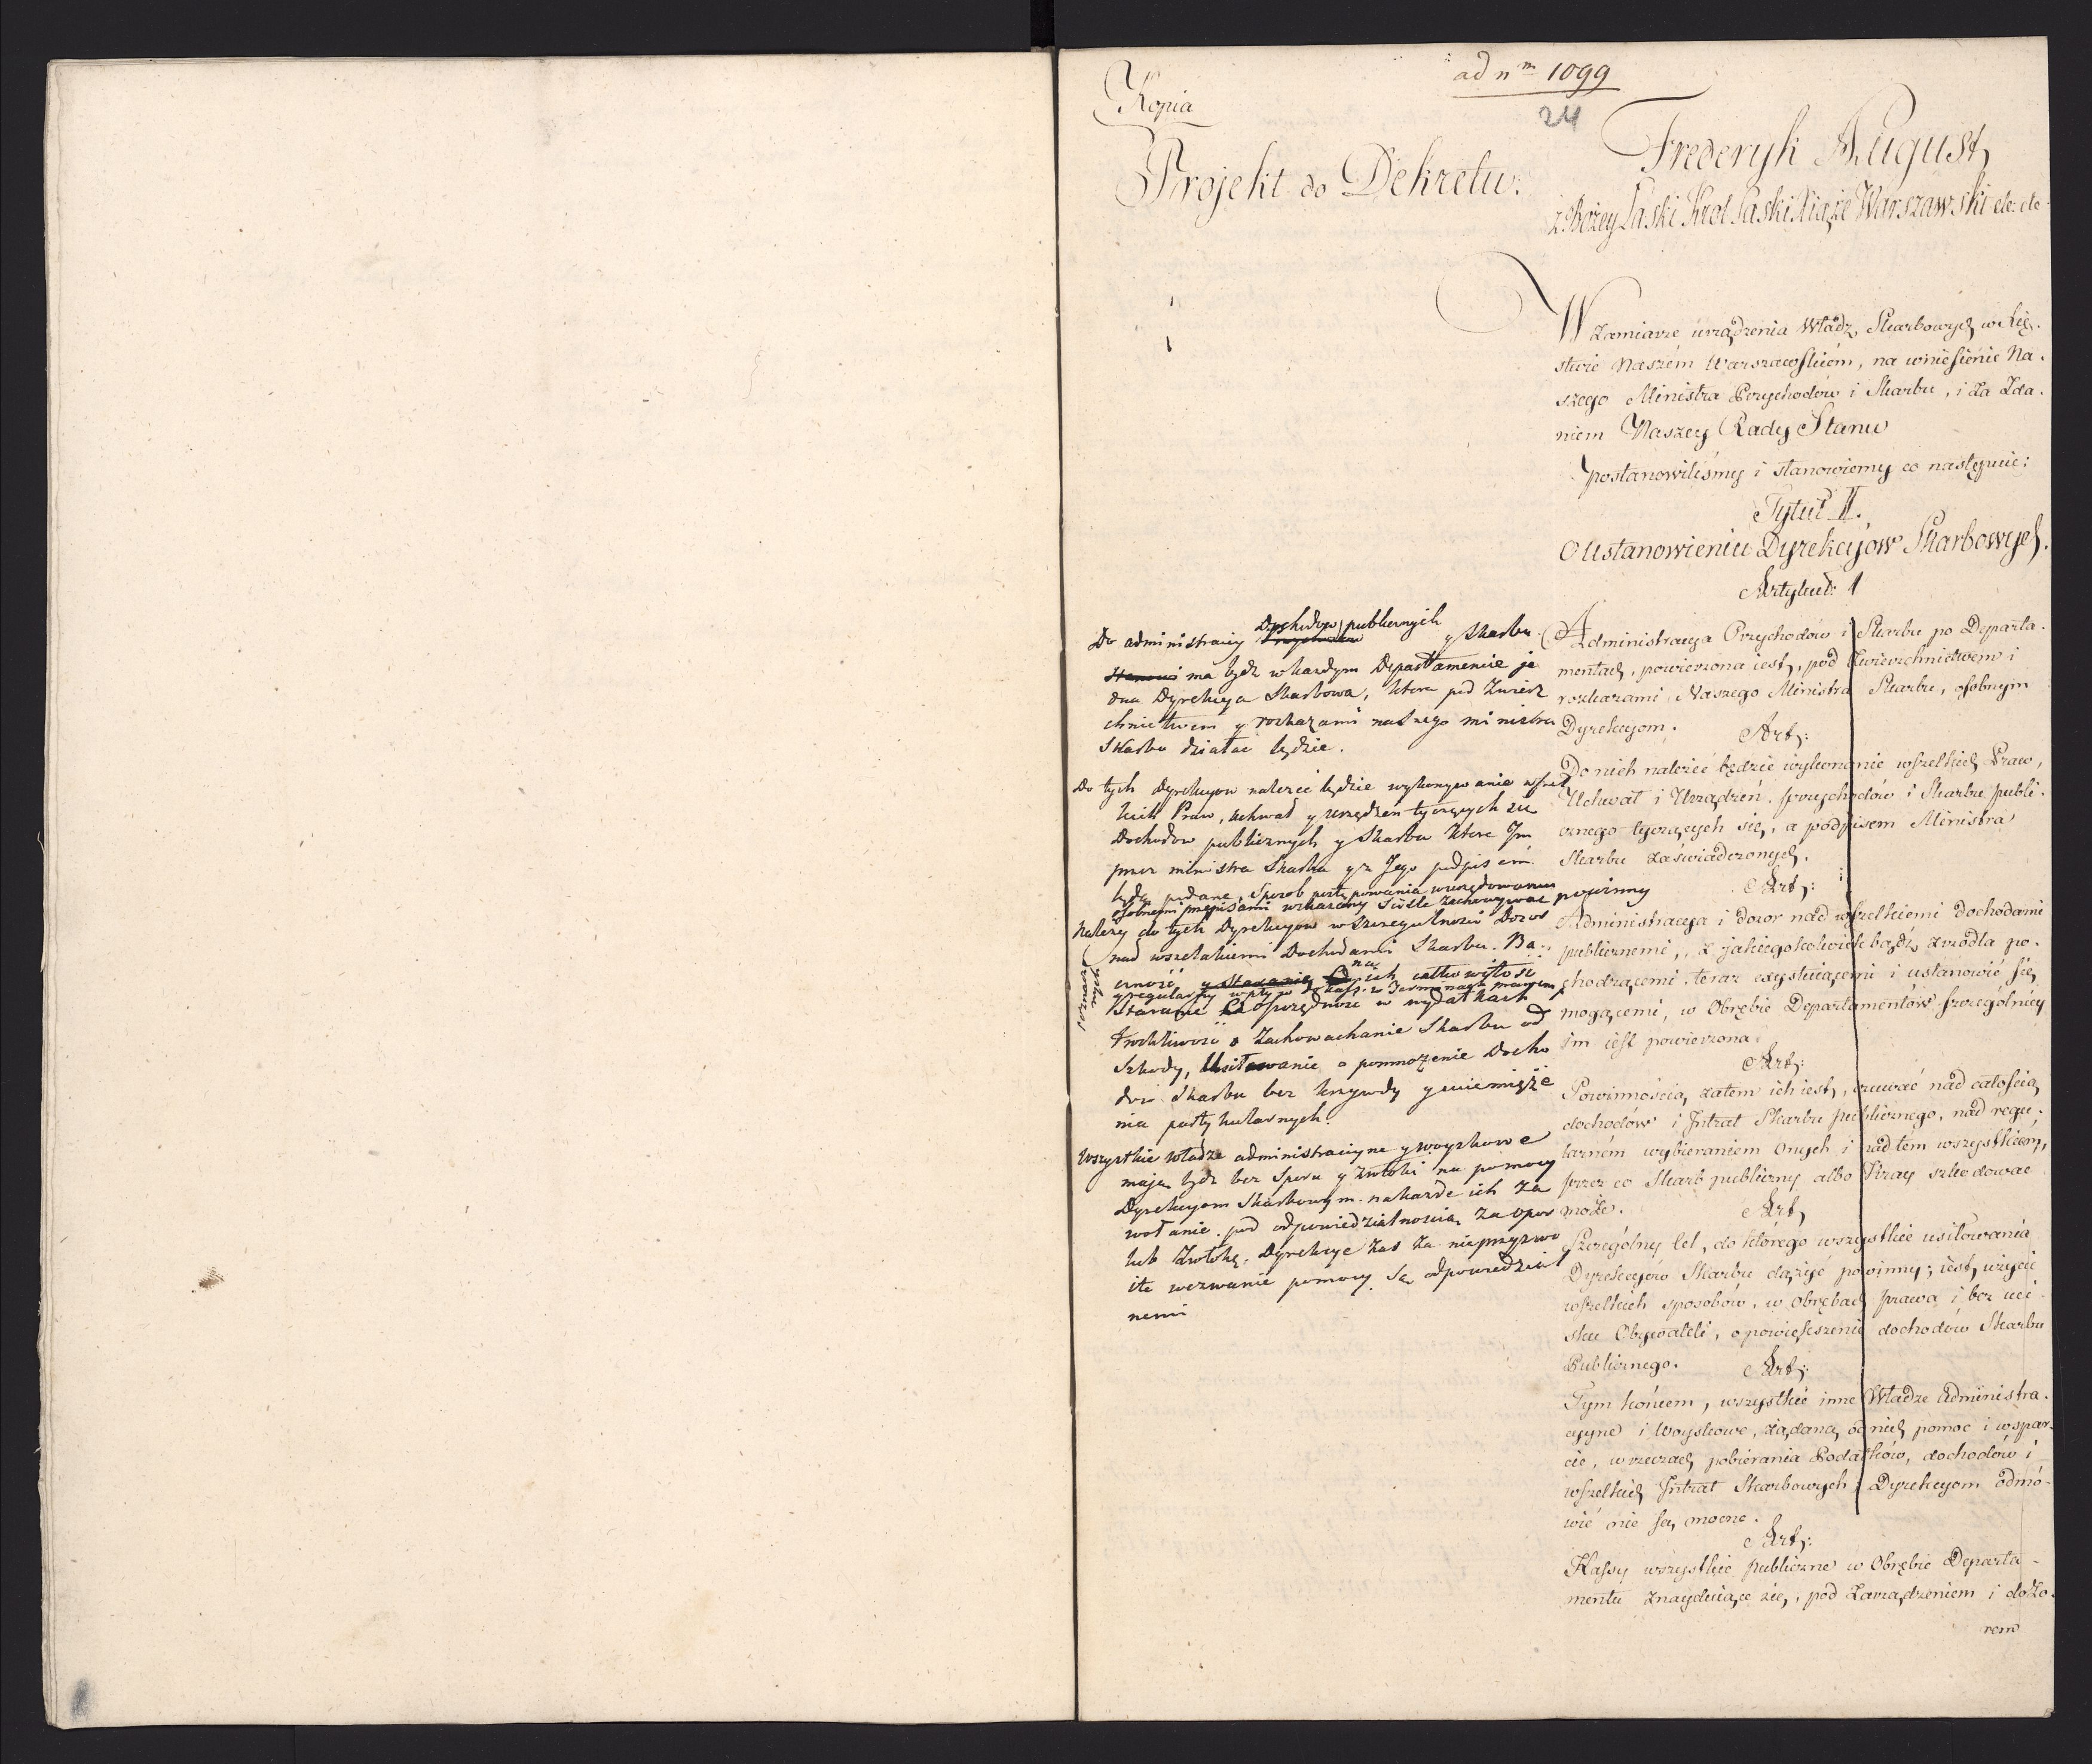 ad nm 1099
24
Kopia
Projekt do Dekretu.
Frederyk August,
z Bożey Łaski Krol Saski Xiąże Warszawski etc: etc
W zamiarze urządzenia Władz Skarbowych w Xię-
stwie Naszém Warszawskiém, na wniesienie Na-
szego Ministra Przychodów i Skarbu, i za Zda-
niem Naszey Rady Stanu
postanowiliśmy i stanowiemy co następuie:
Tytuł II.
O Ustanowieniu Dyrekcyjow Skarbowych.
Artykuł: 1
Administracya Przychodów i Skarbu po Departa-
mentach, powierzona iest, pod Zwierzchnictwem i
rozkazami Naszego Ministra Skarbu, osobnym
Dyrekcyom.
Art:
Do nich należeć będzie wykonanie wszelkich Praw,
Uchwał i Urządzeń przychodów i Skarbu publi-
cznego tyczących się, a podpisem Ministra
Skarbu zaświadczonych.
Art:
Administracya i dozor nad wszelkiemi dochodami
publicznemi, z jakiegokolwiek bądź zrzodła po-
chodzącemi, teraz exystuiącemi i ustanowić się
mogącemi, w Obrębie Departamentów szczególniey
im iest powierzona.
Art:
Powinnością zatem ich iest, czuwać nad całością
dochodów i Intrat Skarbu publicznego, nad regu-
larném wybieraniem onych i nad tem wszystkiém,
przez co Skarb publiczny albo Kray szkodować
może.
Art,
Szczególny Cel, do którego wszystkie usiłowania
Dyrekcyów Skarbu dążyć powinny, iest, użycie
wszelkich sposobów, w obrębach prawa i bez uci-
sku Obywateli, o powiększenie dochodów Skarbu
Publicznego.
Art:
Tym końcem, wszystkie inne Władze Administra-
cyyne i Woyskowe, żądaną od nich pomoc i wspar-
cie, w rzeczach pobierania Podatków, dochodów i
wszelkich Intrat Skarbowych, Dyrekcyom odmó-
wić nie są mocne.
Art:
Kassy wszystkie publiczne w Obrębie Departa-
mentu znayduiące się, pod Zarządzeniem i dozo-
rem
Dochodow publicznych
Do administracyi Przychodow y Skarbu
Stanowi ma bydz w kazdym Departamencie je
dna Dyrekcya Skarbowa, ktora pod Zwierz
chnictwem y rozkazami naszego ministra
Skarbu działac będzie.
Do tych Dyrekcyow należeć będzie wykonywanie wszel
kich Praw, uchwał y urządzen tyczących się
Dochodow publicznych y Skarbu ktore Im
przez ministra Skarbu y z Jego podpisem
będą podane, Sposob postępowania w urzędowaniu
osobnemi przepisami wskazany Sciśle zachowywac powinny
Nalezy do tych Dyrekcyow w szczegulnosci Dozor
nad wszelakiemi Dochodami Skarbu. Ba-
czność y Staranie na ich całkowitość
y regularny wpływ do kass w Terminach prawem
Staranie oszczędnosc w wydatkach
Troskliwość o Zachowachanie Skarbu od
Szkody, Usiłowanie o pomnożenie Docho
dów Skarbu bez krzywdy y uciemięże
nia partykularnych.
Wszystkie władze administracyine y woyskowe
maja bydz bez Sporu y zwłoki na pomocy
Dyrekcyom Skarbowym na kazde ich za
wołanie pod odpowiedzialnoscia za opor
lub Zwłokę. Dyrekcye zas za nieprzyzwo
ite wezwanie pomocy są odpowiedzial
nemi